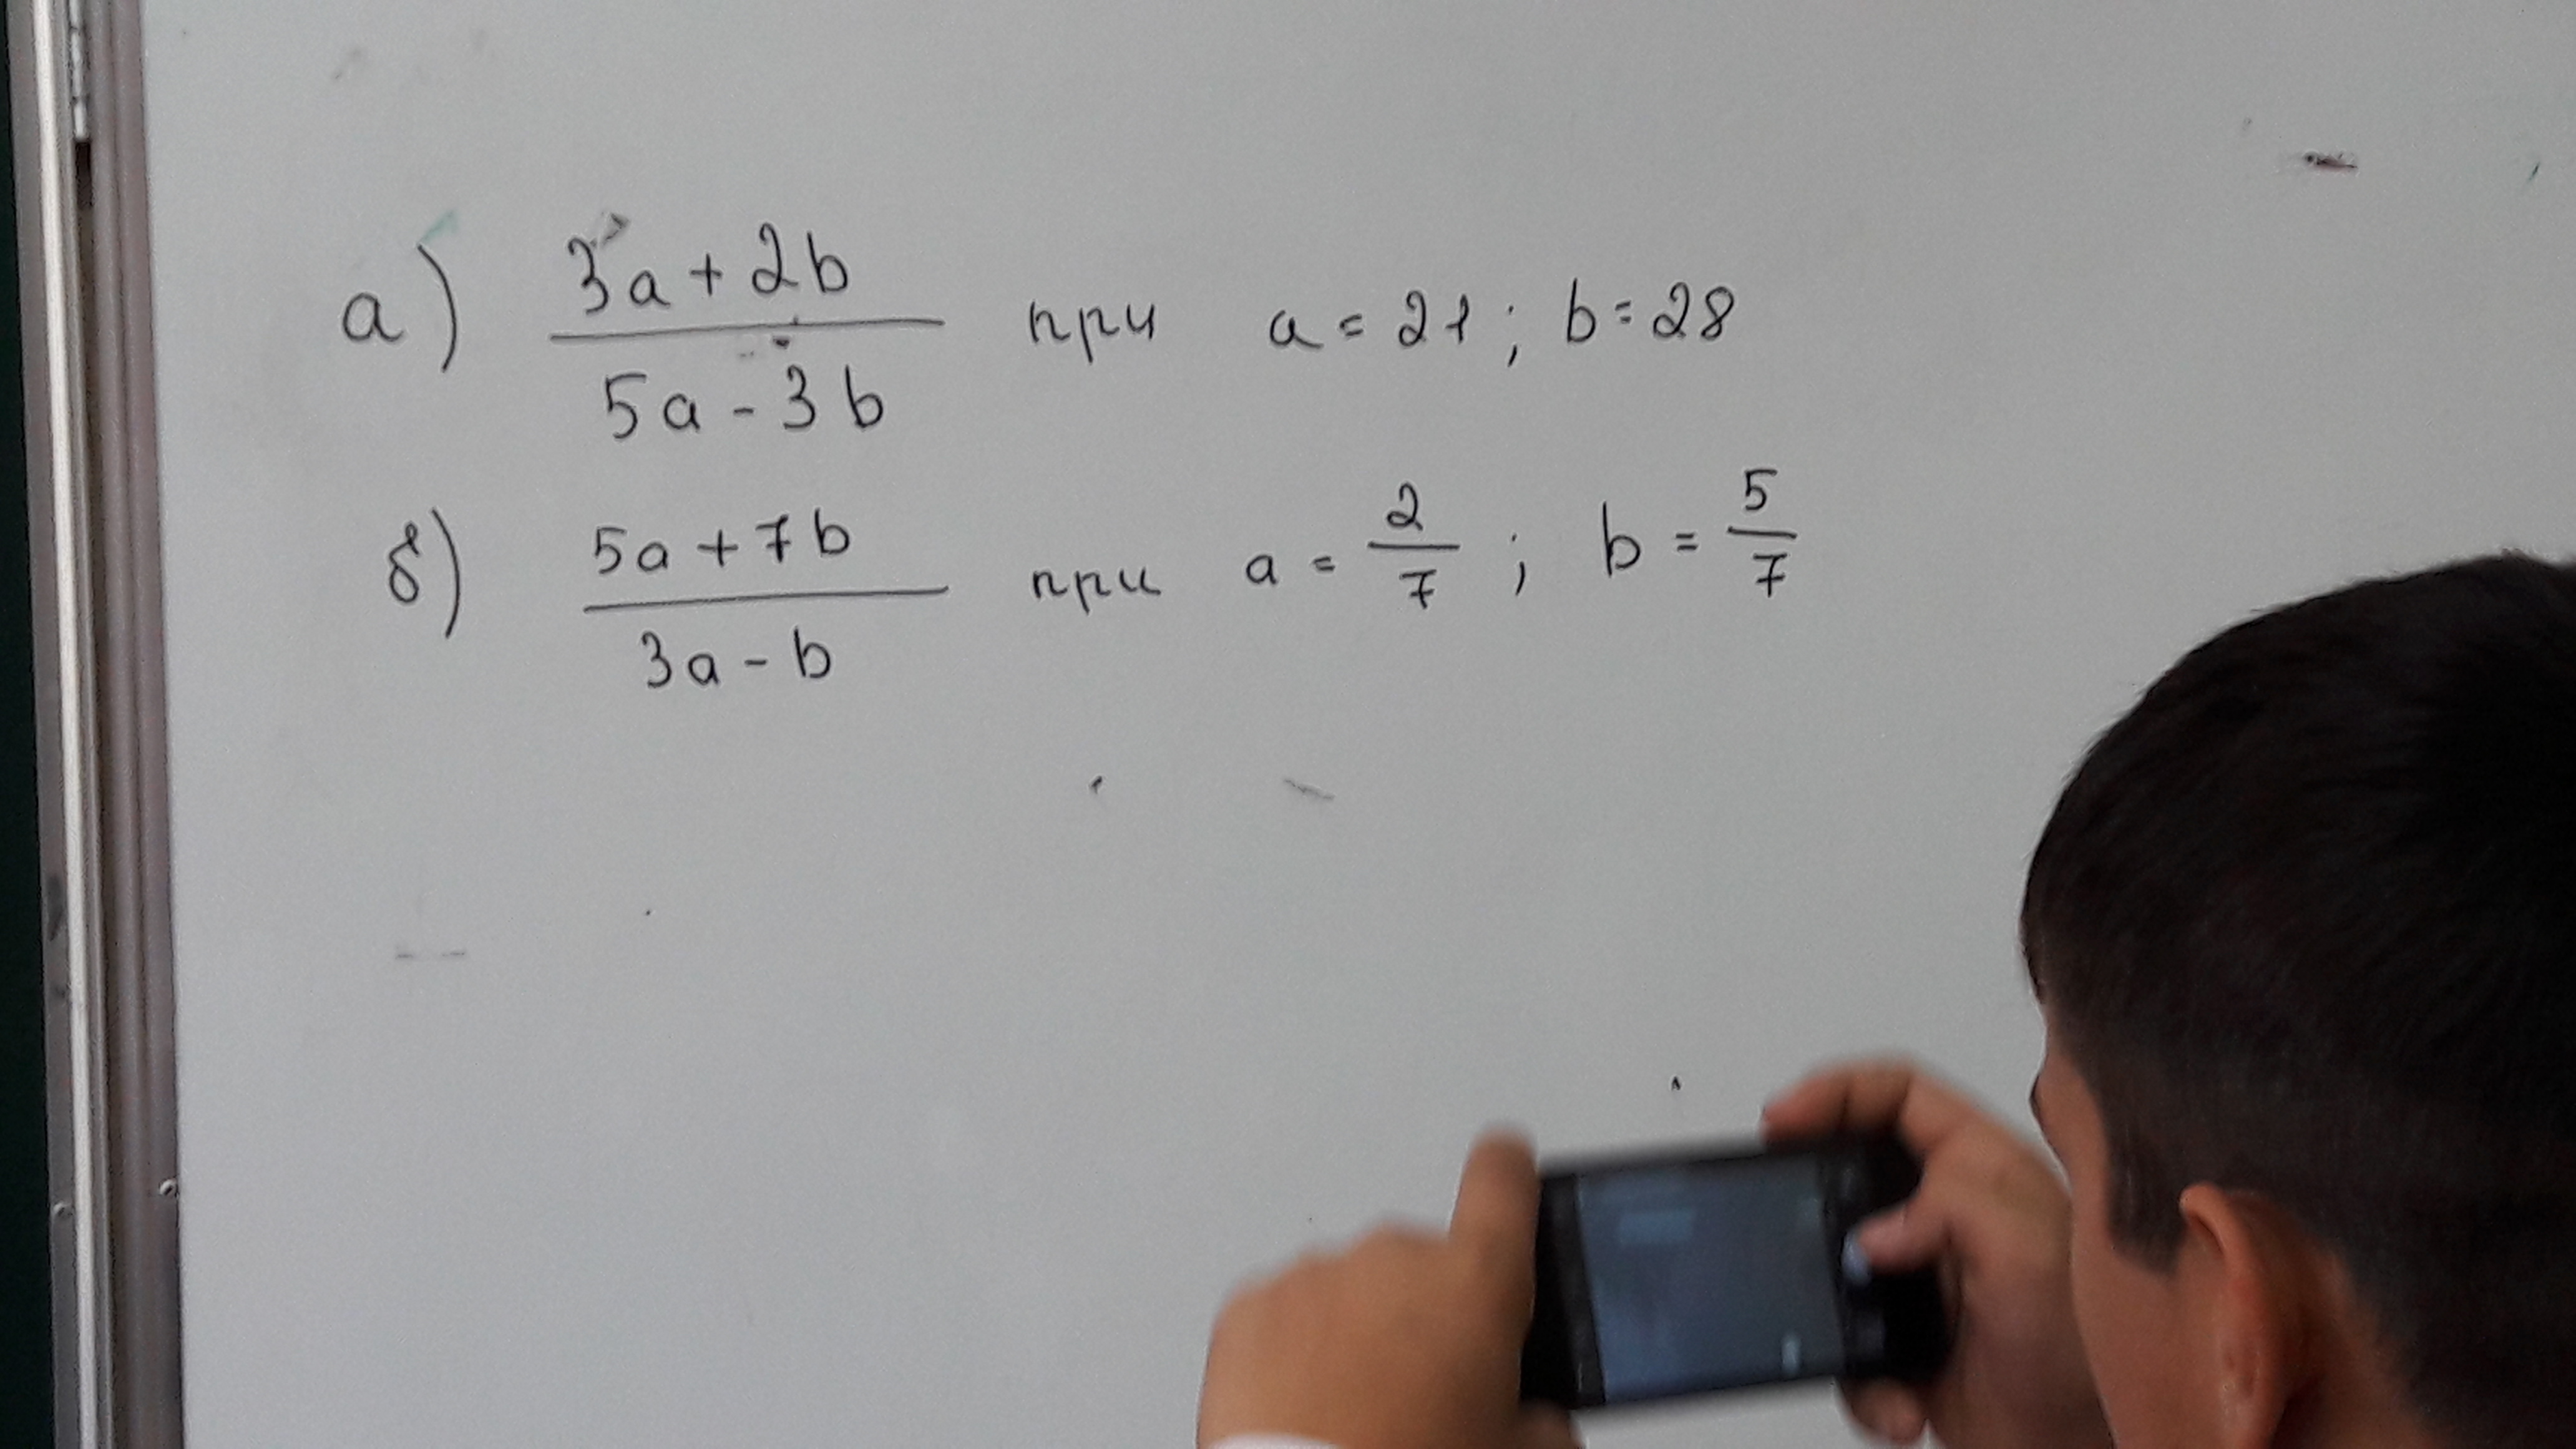 а) 3a + 2b
5a - 3b
при a = 21 ; b = 28
б) 5a + 7b
3a - b
при a = 2/7 ; b = 5/7